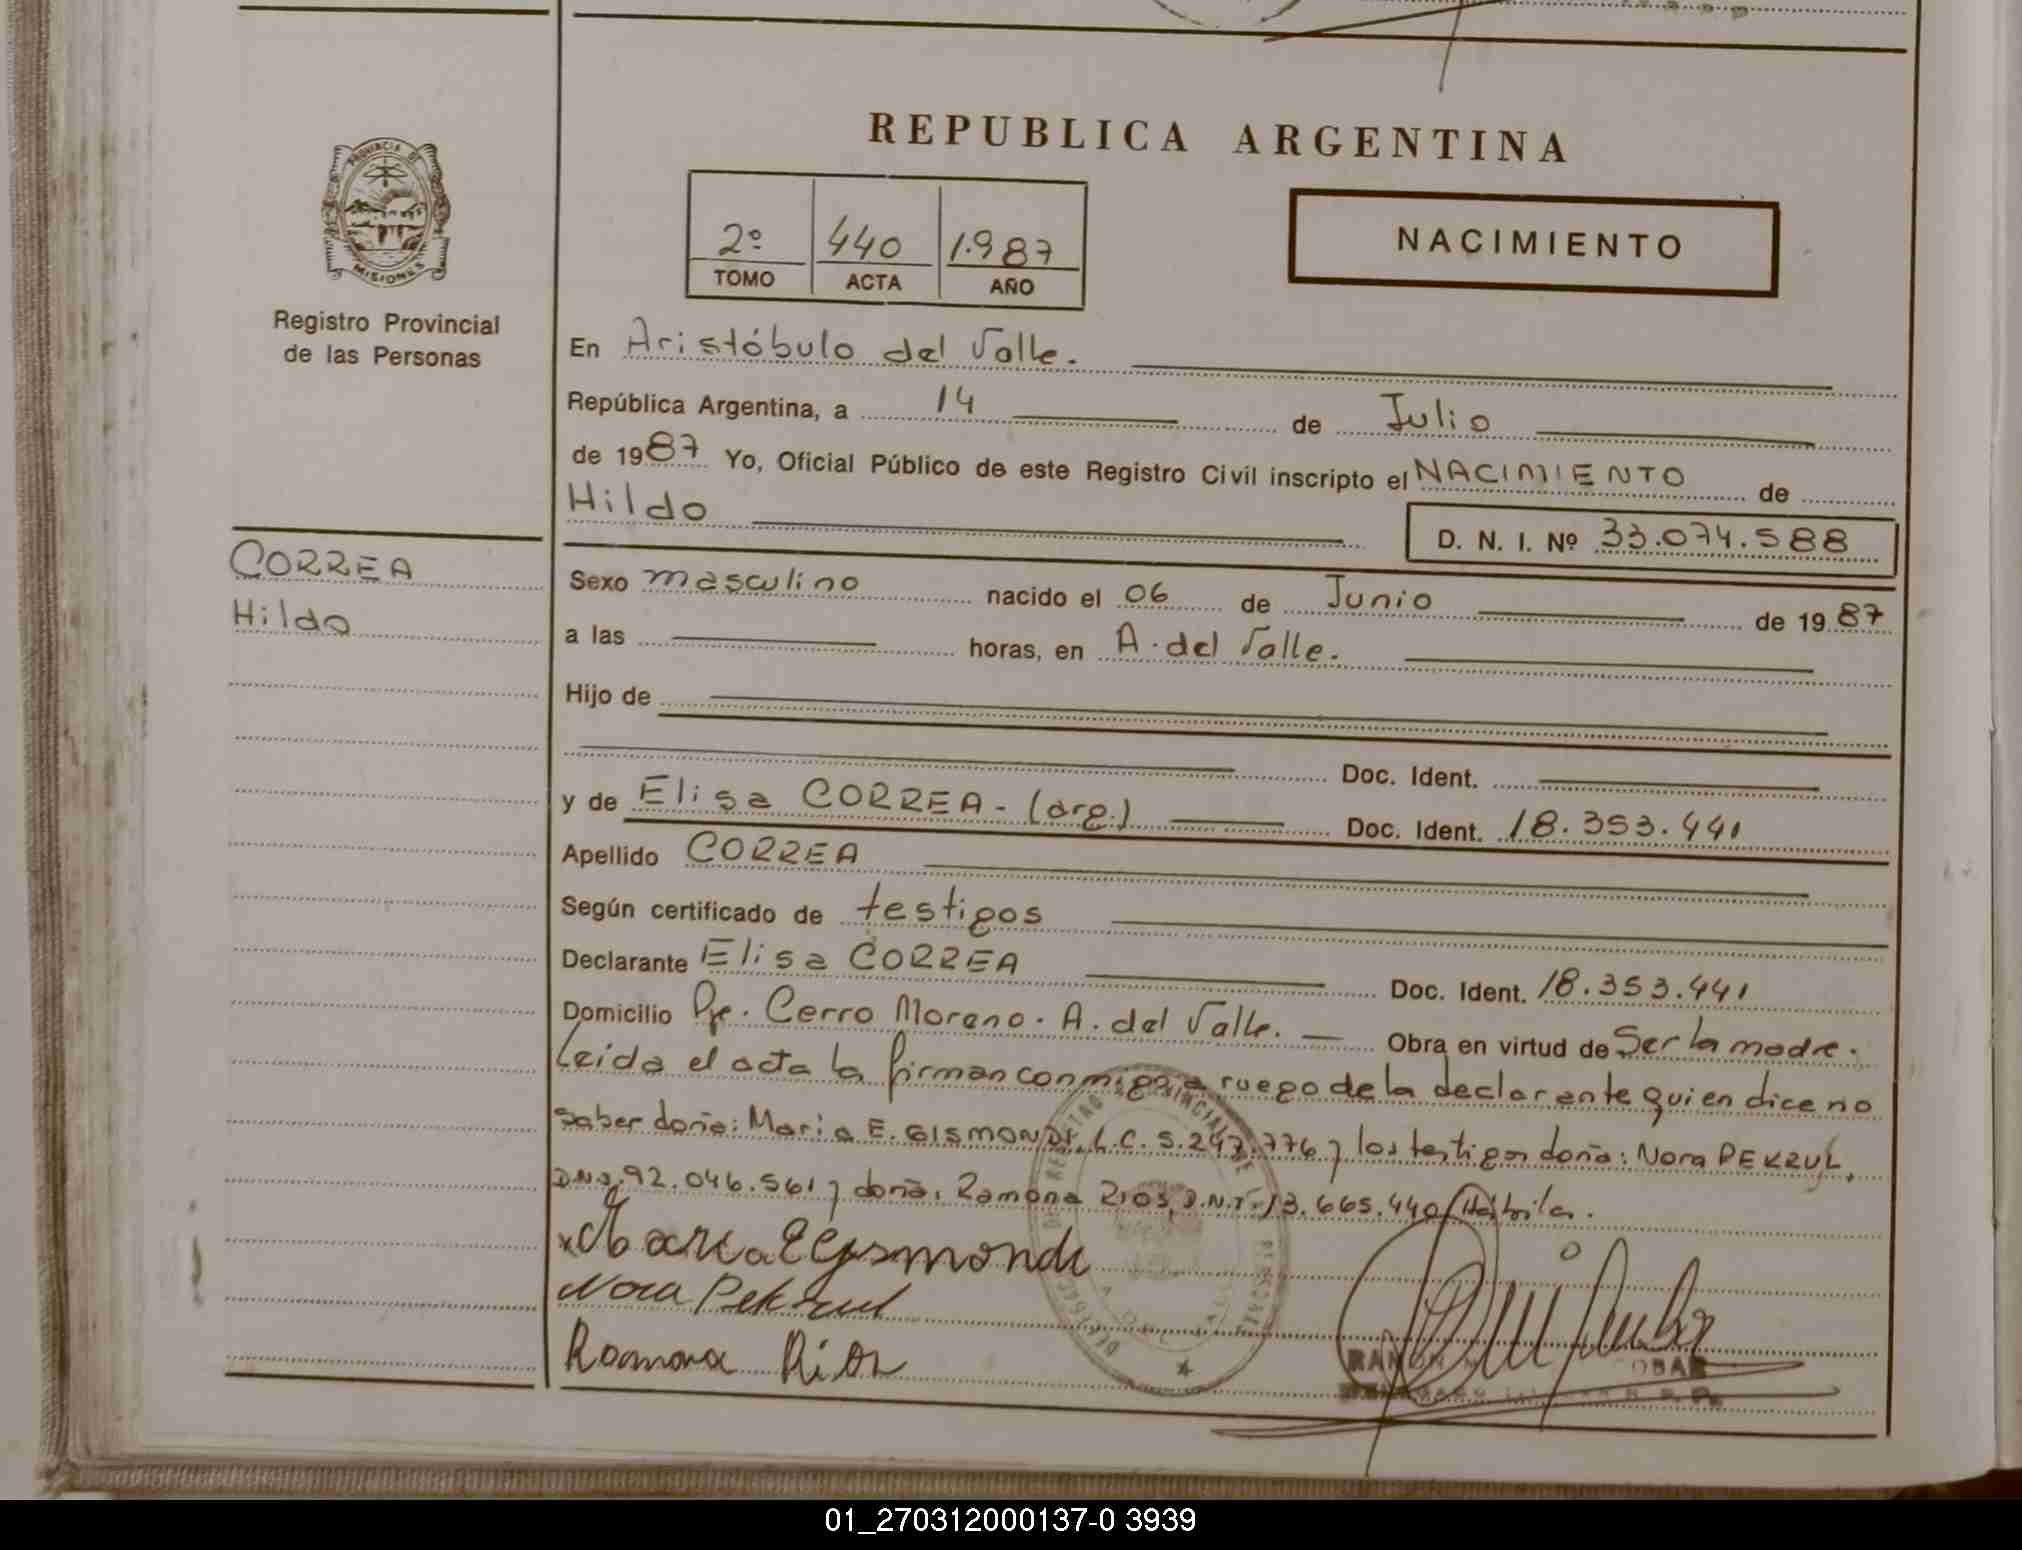 REPUBLICA ARGENTINA
PROVINCIA DE
MISIONES
Registro Provincial
de las Personas
2º 440 1.987
TOMO ACTA AÑO
NACIMIENTO
En Aristóbulo del Valle.
República Argentina, a 14 de Julio
de 1987 Yo, Oficial Público de este Registro Civil inscripto el NACIMIENTO de
Hildo
D. N. I. Nº 33.074.588
CORREA
Hildo
Sexo masculino nacido el 06 de Junio de 1987
a las horas, en A. del Valle.
Hijo de
Doc. Ident.
y de Elisa CORREA - (arg.) Doc. Ident. 18.353.441
Apellido CORREA
Según certificado de testigos
Declarante Elisa CORREA Doc. Ident. 18.353.441
Domicilio Pje. Cerro Moreno. A. del Valle. Obra en virtud de Ser la madre.
Leida el acta la firman conmigo a ruego de la declarante quien dice no
saber doña: Maria E. GISMONDI, L.C. 5.247.776 y los testigos doña: Nora PEKZUL,
D.N.I. 92.046.561 y doña: Ramona RIOS, D.N.I. 13.665.440 Hábiles.
Maria E Gismondi
Nora Pekzul
Ramona Rios
RAMON
OBAR
01_270312000137-0 3939